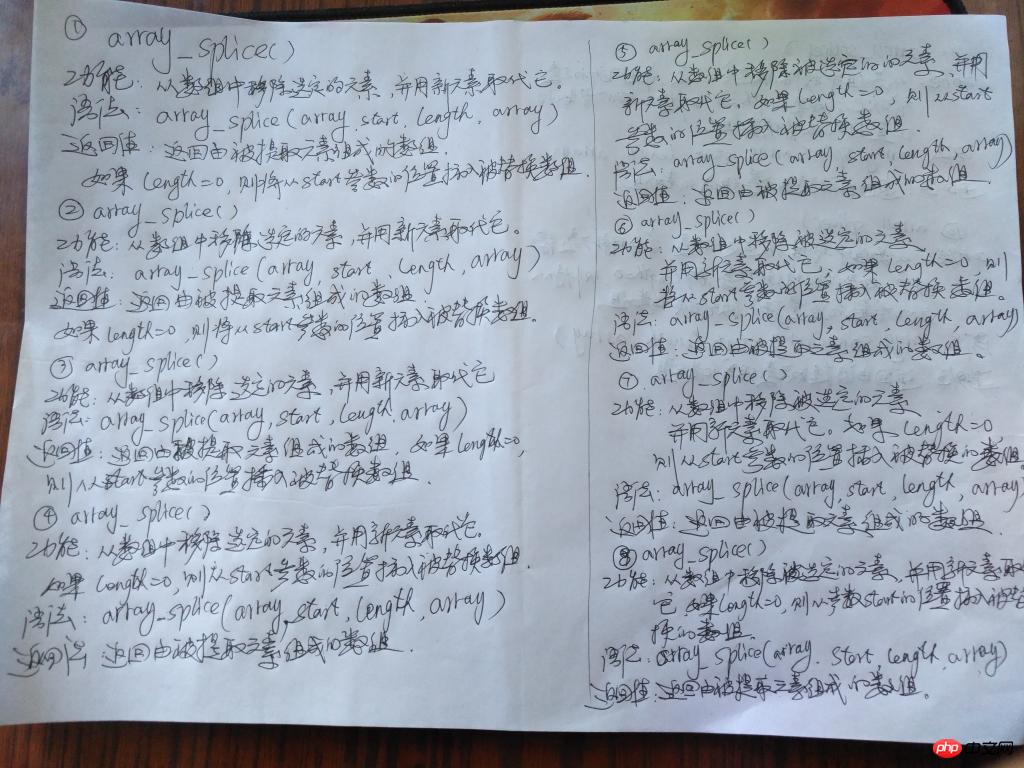 ① array_splice()
功能：从数组中移除选定的元素，并用新元素取代它。
语法：array_splice(array,start,length,array)
返回值：返回由被提取元素组成的数组.
如果length=0，则将从start参数的位置插入被替换数组.
② array_splice()
功能：从数组中移除选定的元素，并用新元素取代它。
语法：array_splice(array,start,length,array)
返回值：返回由被提取元素组成的数组
如果length=0，则将从start参数的位置插入被替换数组.
③ array_splice()
功能：从数组中移除选定的元素，并用新元素取代它
语法：array_splice(array,start,length,array)
返回值：返回由被提取元素组成的数组，如果length=0，
则从start参数的位置插入被替换数组.
④ array_splice()
功能：从数组中移除选定的元素，并用新元素取代它.
如果length=0，则从start参数的位置插入被替换数组.
语法：array_splice(array,start,length,array)
返回值：返回由被提取元素组成的数组.
⑤ array_splice()
功能：从数组中移除被选定的元素，并用
新元素取代它。如果length=0，则从start
参数的位置插入被替换数组.
语法：array_splice(array,start,length,array)
返回值：返回由被提取元素组成的数组
⑥ array_splice()
功能：从数组中移除被选定的元素
并用新元素取代它，如果length=0，则
从start参数的位置插入被替换数组。
语法：array_splice(array,start,length,array)
返回值：返回由被提取元素组成的数组。
⑦ array_splice()
功能：从数组中移除被选定的元素
并用新元素取代它。如果length=0
则从start参数的位置插入被替换的数组
语法：array_splice(array,start,length,array)
返回值：返回由被提取元素组成的数组
⑧ array_splice()
功能：从数组中移除被选定的元素，并用新元素取
它 如果length=0，则从参数start的位置插入被替
换的数组
语法：array_splice(array,start,length,array)
返回值：返回由被提取元素组成的数组。
php 中文网